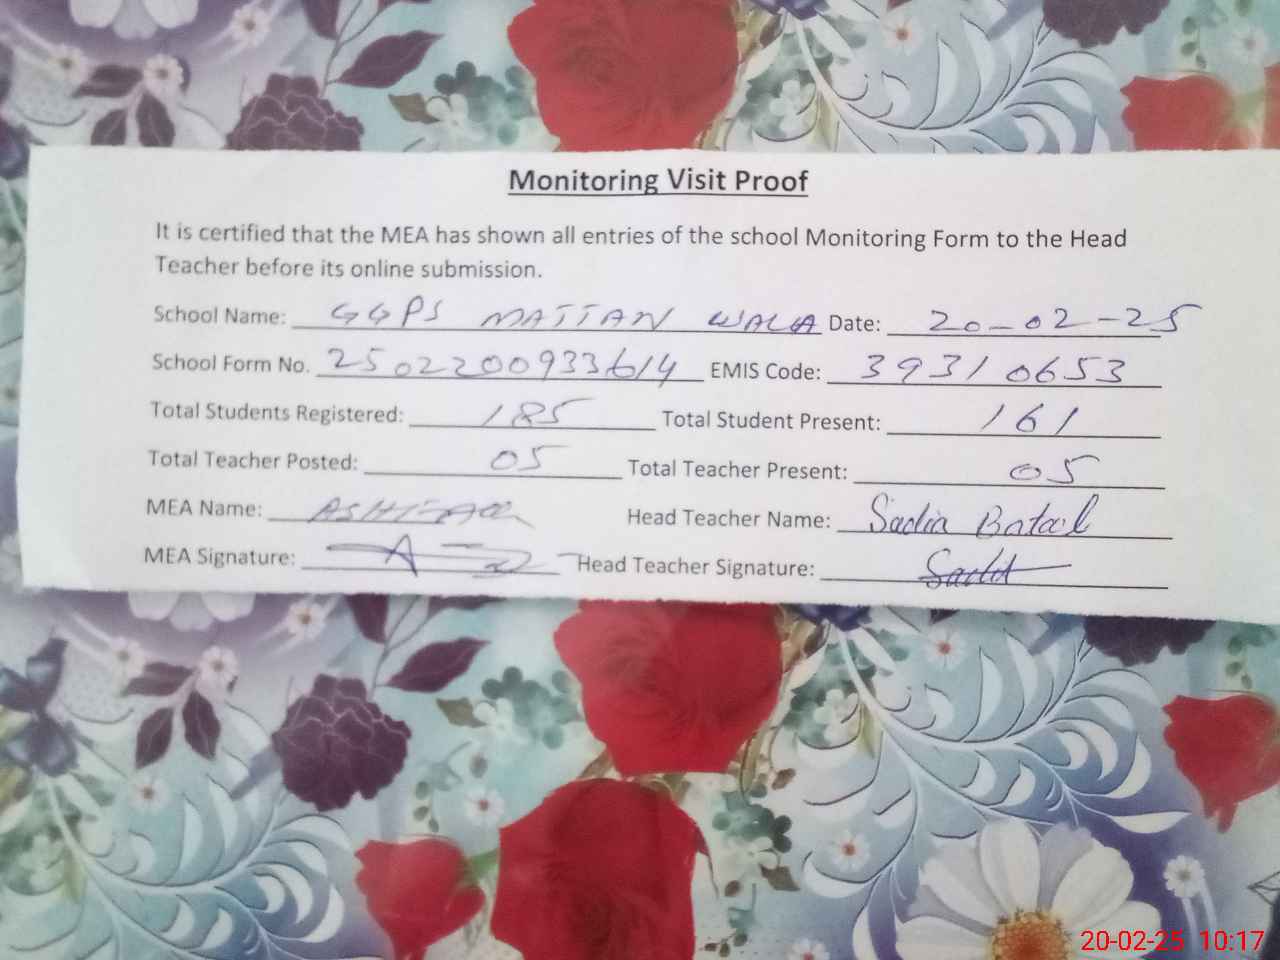 Monitoring Visit Proof
It is certified that the MEA has shown all entries of the school Monitoring Form to the Head
Teacher before its online submission.
School Name: GGPS MATTAN WALA Date: 20-02-25
School Form No. 2502200933614 EMIS Code: 39310653
Total Students Registered: 185 Total Student Present: 161
Total Teacher Posted: 05 Total Teacher Present: 05
MEA Name: Head Teacher Name: Sadia Batool
MEA Signature: Head Teacher Signature:
20-02-25 10:17